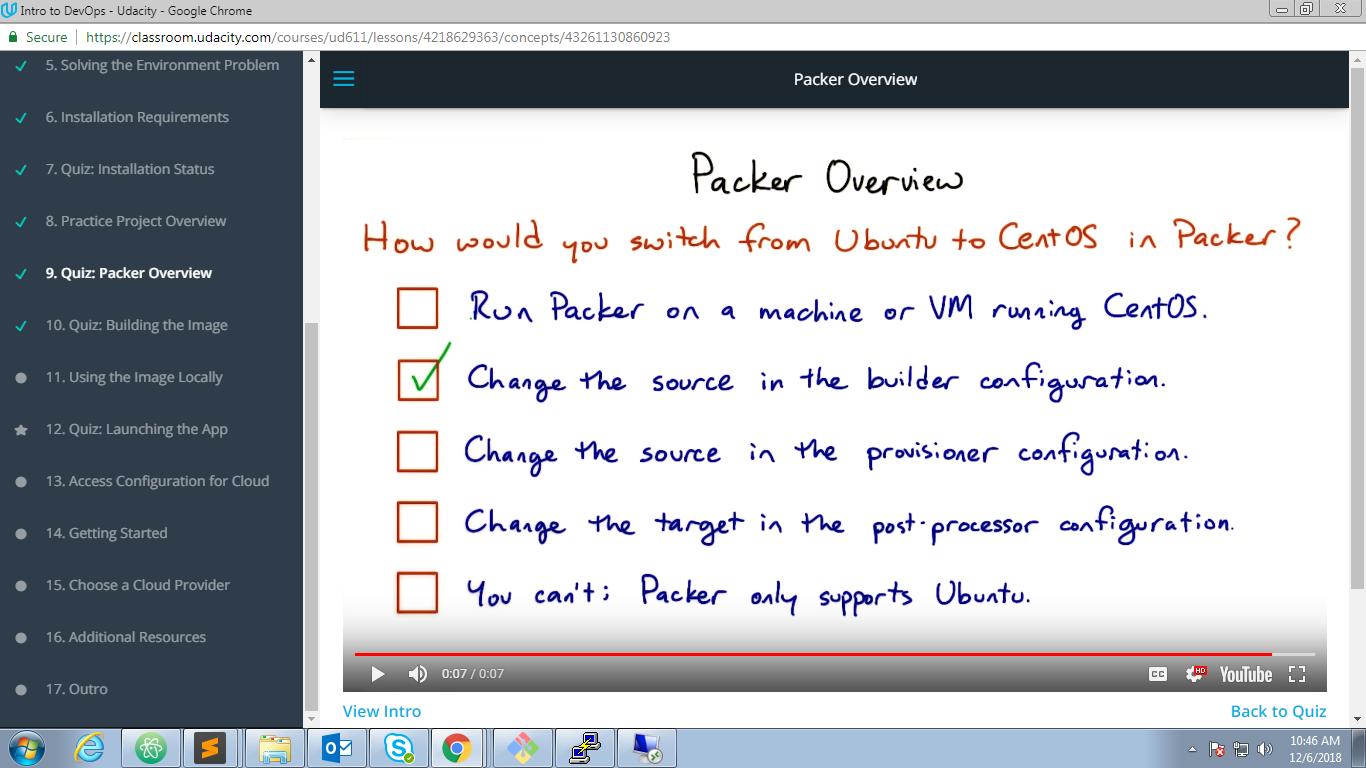 Intro to DevOps - Udacity - Google Chrome
Secure https://classroom.udacity.com/courses/ud611/lessons/4218629363/concepts/43261130860923
5. Solving the Environment Problem
6. Installation Requirements
7. Quiz: Installation Status
8. Practice Project Overview
9. Quiz: Packer Overview
10. Quiz: Building the Image
11. Using the Image Locally
12. Quiz: Launching the App
13. Access Configuration for Cloud
14. Getting Started
15. Choose a Cloud Provider
16. Additional Resources
17. Outro
Packer Overview
Packer Overview
How would you switch from Ubuntu to CentOS in Packer?
Run Packer on a machine or VM running CentOS.
Change the source in the builder configuration.
Change the source in the provisioner configuration.
Change the target in the post-processor configuration.
You can't; Packer only supports Ubuntu.
0:07 / 0:07
CC
HD
YouTube
View Intro
Back to Quiz
10:46 AM
12/6/2018